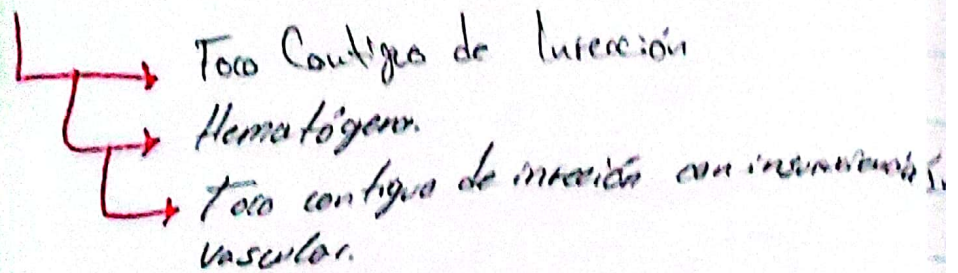 Foco Contiguo de Infección
Hematógena.
Foco contiguo de infección con insuficiencia
vascular.